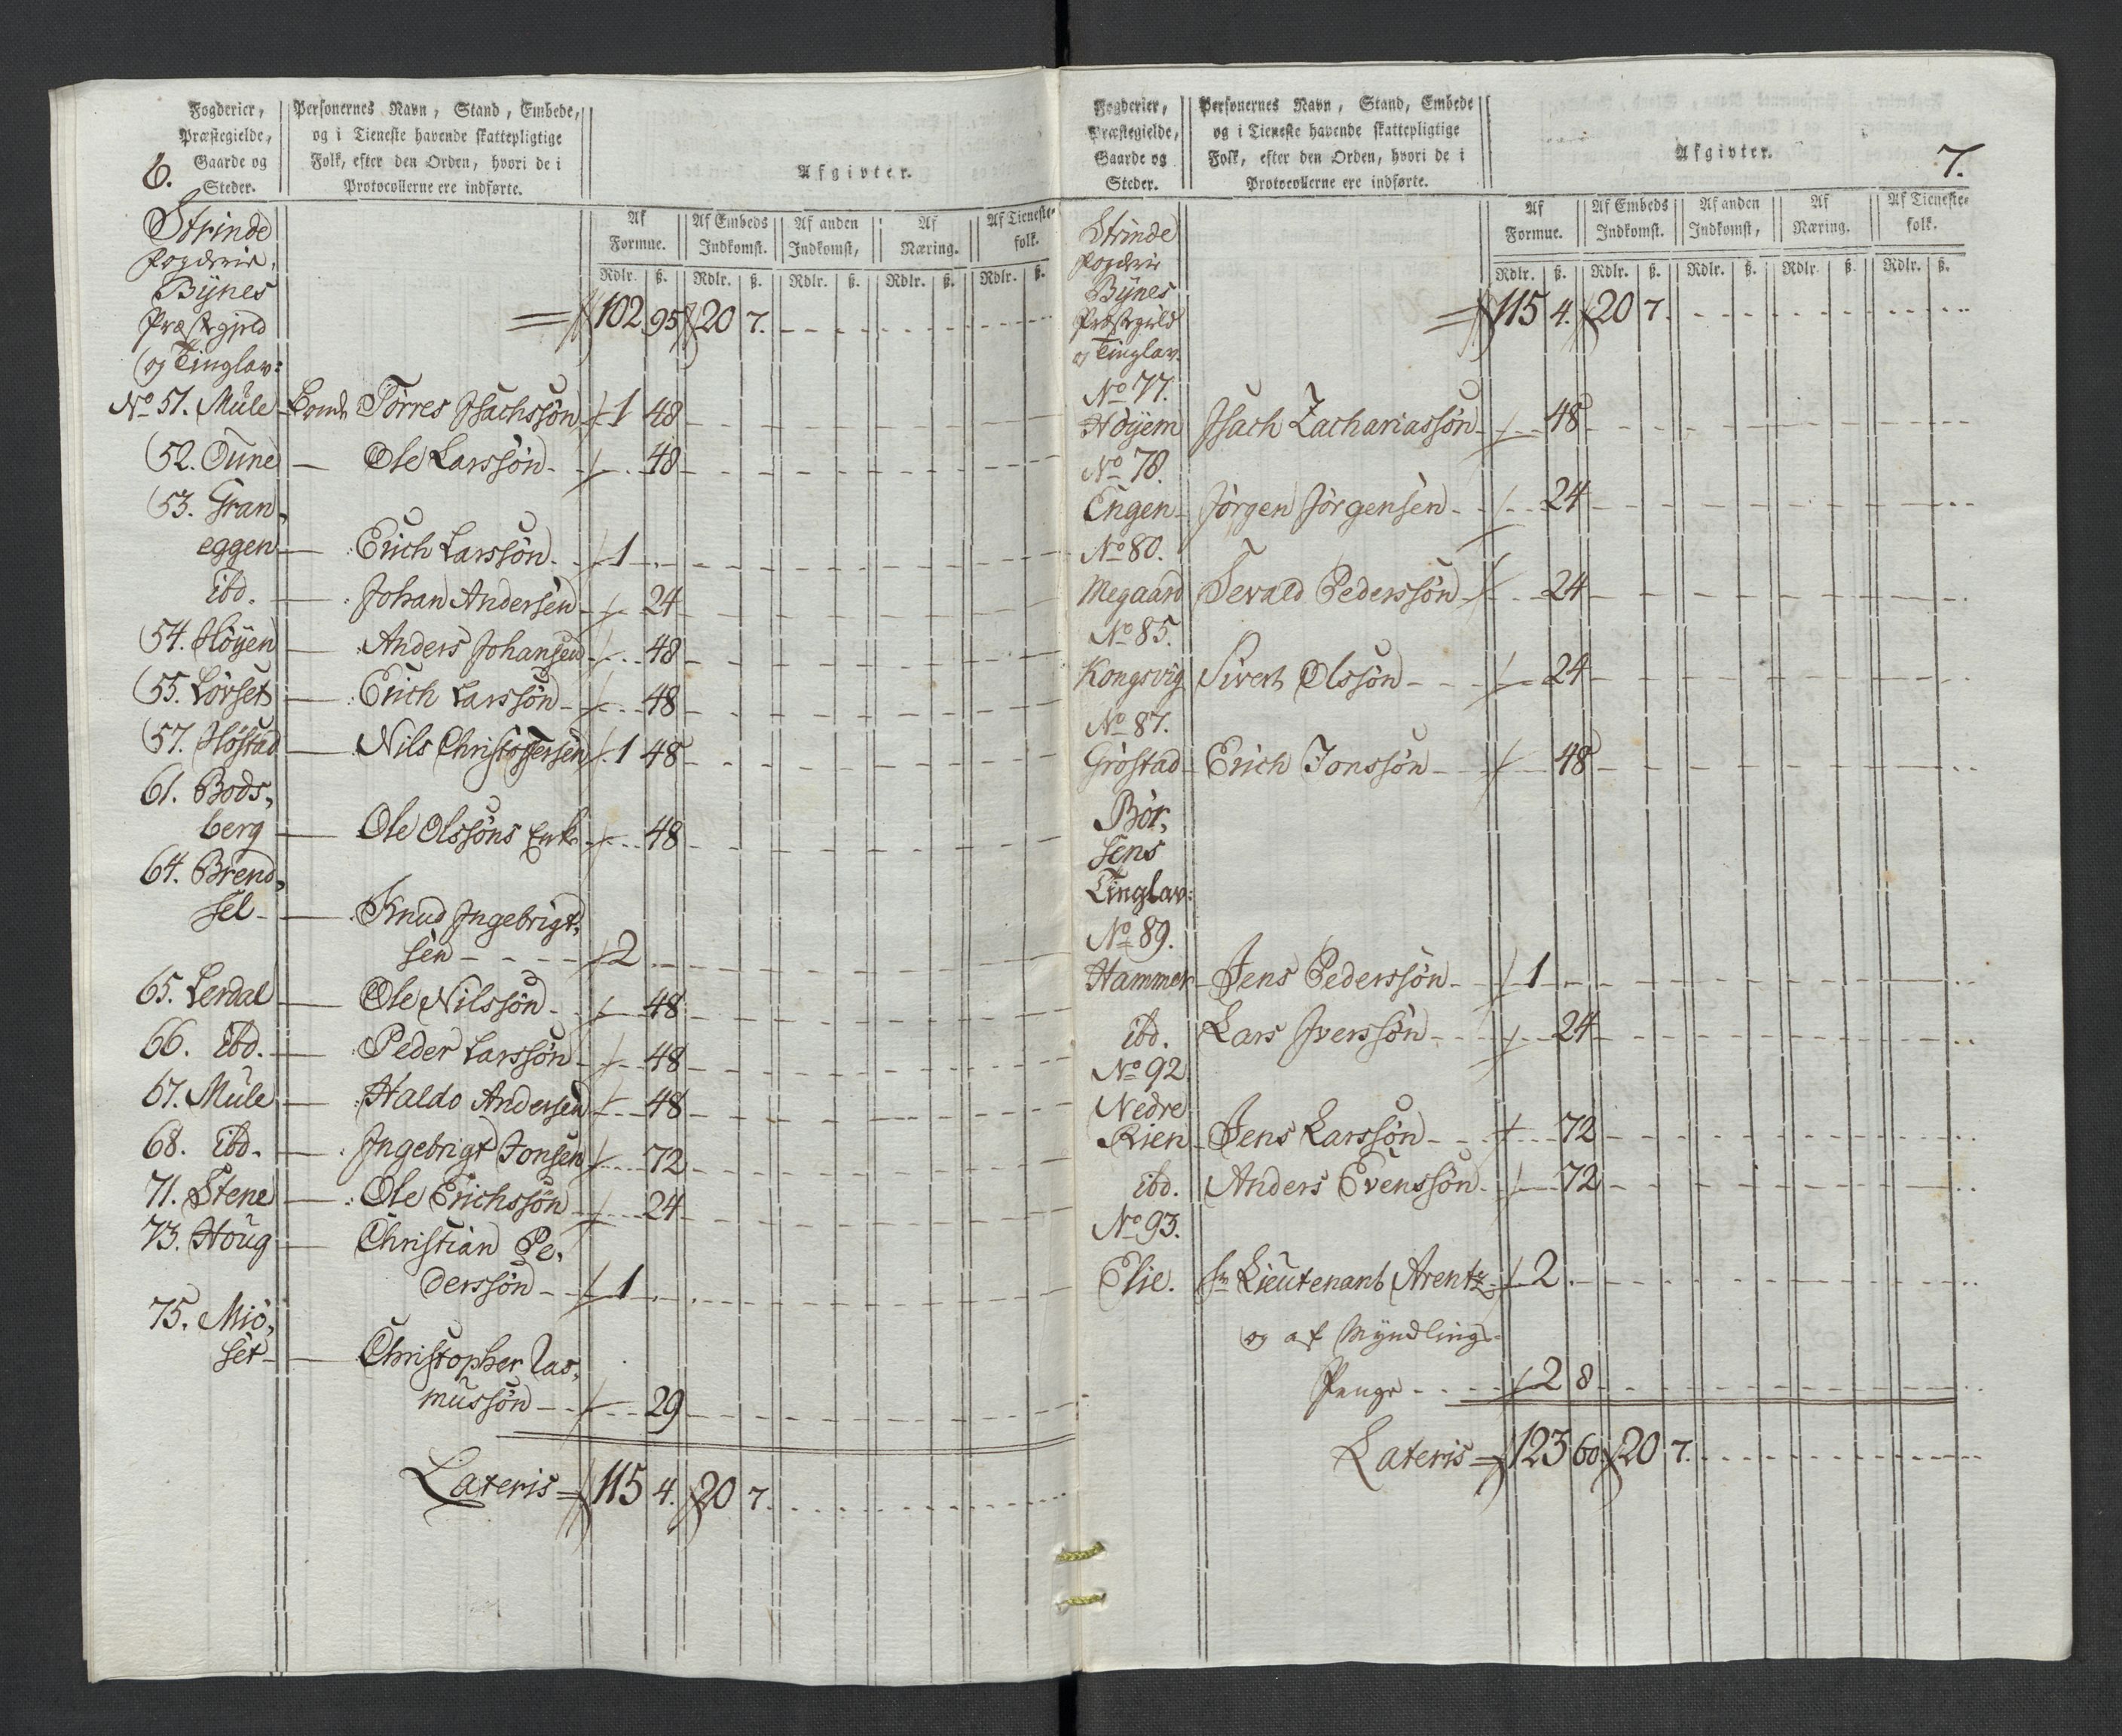 6.
Fogderier, Præstegielde, Gaarde og Steder.
Personernes Navn, Stand, Embede,
og i Tieneste havende skattepligtige
Folk, efter den Orden, hvori de i
Protocollerne ere indførte.
Afgivter.
Af Formue. Af Embeds Indkomst. Af anden Indkomst, Af Næring. Af Tieneste-folk.
Rdlr. ß. Rdlr. ß. Rdlr. ß. Rdlr. ß. Rdlr. ß.
Strinde
Fogderie,
Bÿnes
Præstegjeld 102 95 20 7.
og Tinglav:
No 51. Mule Torres Isachssøn 1 48
52. Tune — Ole Larssøn 48
53. Gran,
eggen — Erich Larssøn 1
ibd. — Johan Andersen 24
54. Høyen — Anders Johansen 48
55. Lørset — Erich Larssøn 48
57. Høstad — Nils Christoffersen 1 48
61. Bods,
berg — Ole Olssøns Enke 48
64. Brend,
sel — Knud Ingebrigt,
sen 2
65. Lerdal — Ole Nilssøn 48
66. ibd. — Peder Larssøn 48
67. Mule — Haldo Andersen 48
68. ibd. — Ingebrigt Jonsen 72
71. Stene — Ole Erichssøn 24
73. Houg — Christian Pe,
derssøn 1
75. Miø,
set — Christopher Ras,
mussøn 29
Lateris 115 4. 20 7.
7.
Fogderier, Præstegielde, Gaarde og Steder.
Personernes Navn, Stand, Embede
og i Tieneste havende skattepligtige
Folk, efter den Orden, hvori de i
Protocollerne ere indførte.
Afgivter.
Af Formue. Af Embeds Indkomst. Af anden Indkomst, Af Næring. Af Tieneste-folk.
Rdlr. ß. Rdlr. ß. Rdlr. ß. Rdlr. ß. Rdlr. ß.
Strinde
Fogderie
Bÿnes
Præstegield 115 4. 20 7.
og Tinglav.
No 77.
Høyem Isach Zachariassøn 48
No 78.
Engen Jørgen Jørgensen 24
No 80.
Megaard Sevald Pederssøn 24
No 85.
Kongsvig Sivert Olssøn 24
No 87.
Grøstad Erich Jonssøn 48
Bør,
sens
Tinglav:
No 89.
Hammer Jens Pederssøn 1
ibd. Lars Iverssøn 24
No 92
Nedre
Rien Jens Larssøn 72
ibd. Anders Evenssøn 72
No 93.
Elie. Hr Lieutenant Arentz 2.
og af Myndlings
Penge 2 8
Lateris 123 60 20 7.